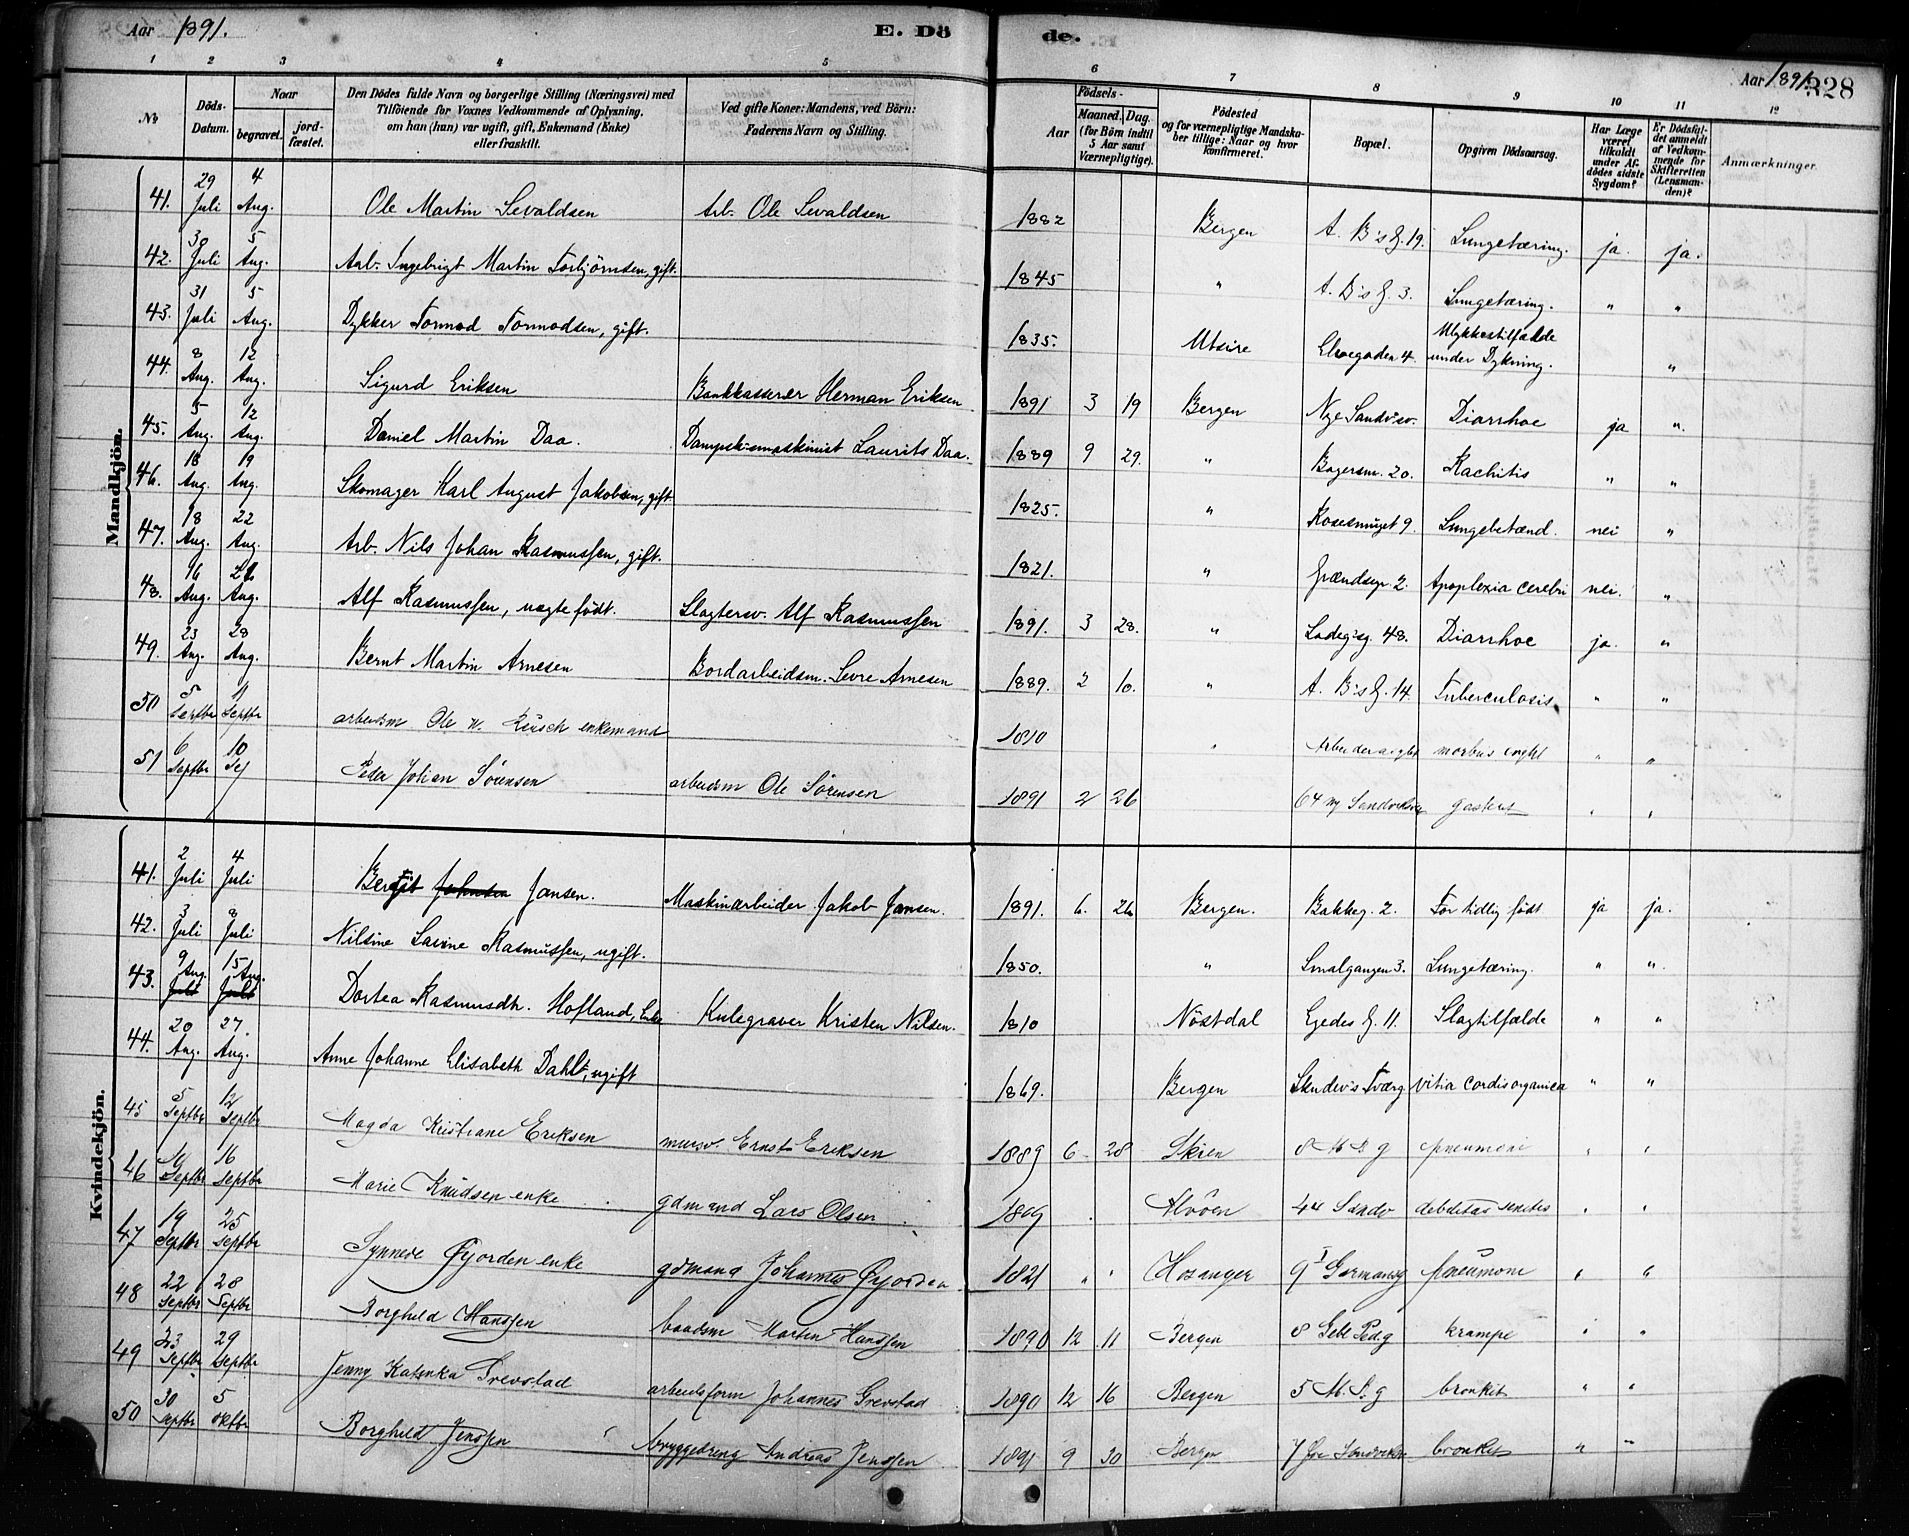 Aar 1891. E. Dö de. Aar 1891. 328
1 2 3 4 5 6 7 8 9 10 11 12
No
Döds-Datum.
Naar begravet. jordfæstet.
Den Dödes fulde Navn og borgerlige Stilling (Næringsvei) med
Tilföiende for Voxnes Vedkommende af Oplysning,
om han (hun) var ugift, gift, Enkemand (Enke)
eller fraskilt.
Ved gifte Koner: Mandens, ved Börn:
Faderens Navn og Stilling.
Födsels-
Aar Maaned. Dag.
(for Börn indtil 5 Aar samt Værnepligtige).
Födested
og for værnepligtige Mandskaber tillige: Naar og hvor konfirmeret.
Bopæl.
Opgiven Dödsaarsag.
Har Læge været tilkaldt under Afdödes sidste Sygdom?
Er Dödsfaldet anmeldt af Vedkommende for Skifteretten (Lensmanden)?
Anmærkninger.
Mandkjön.
41. 29 Juli 4 Aug. Ole Martin Sevaldsen Arb. Ole Sevaldsen 1882 Bergen A. B's G. 19. Lungetæring. ja. ja.
42. 30 Juli 5 Aug. Arb. Ingebrigt Martin Torbjörnsen, gift. 1845 " A. B's G. 3. Lungetæring. " "
43. 31 Juli 5 Aug. Dykker Tormod Tormodsen, gift. 1835. Utsire Elvegaden 4. Ulykkestilfælde under Dykning. "
44. 8 Aug. 12 Aug. Sigurd Eriksen Bankkasserer Herman Eriksen 1891 3 19 Bergen Nye Sandvsv. Diarrhoe ja "
45. 5 Aug. 12 Aug. Daniel Martin Daa. Dampsk.smaskinist Laurits Daa. 1889 9 29. " Bagersm. 20. Rachitis " "
46. 18 Aug. 19 Aug. Skomager Karl August Jakobsen, gift 1825. " Rosesmuget 9. Lungebetænd. nei "
47. 18 Aug. 22 Aug. Arb. Nils Johan Rasmussen, gift. 1821. " Grændsegr. 2. Apoplexia cerebri nei. "
48. 16 Aug. Aug. Alf Rasmussen, uægte födt. Slagtersv. Alf Rasmussen 1891. 3 28. " Ladeg'sg. 48. Diarrhoe ja. "
49. 23 Aug. 28 Aug. Bernt Martin Arnesen Bordarbeidsm. Sevre Arnesen 1889. 2 10. " A. B's G. 14. Tuberculosis " "
50 5 Septbr 11 Septbr arbeidsm Ole enkemand 1810 " morbus " "
51 6 Septbr 10 Peder Johan Sørensen arbeidsm Ole Sørensen 1891 2 26 64 ny Sandviksv " "
Kvindekjön.
41. 2 Juli 4 Juli Jansen. Maskinarbeider Jakob Jansen. 1891. 6. 26 Bergen. Bakkeg. 2. For tidlig födt ja ja.
42. 3 Juli 8 Juli Nilsine Lavine Rasmussen, ugift. 1850. " Smalgangen 3. Lungetæring. " "
43. 9 Aug. Juli 15 Aug. Juli Dortea Rasmusdtr. Hofland, Enke Kulegraver Kristen Nilsen. 1810 Nöstdal Egedes G. 11. Slagtilfælde " "
44. 20 Aug. 27. Aug. Anne Johanne Elisabeth Dahl, ugift 1869. Bergen Skudev's Tværg Vitia cordis organica " "
45 5 Septbr 12 Septbr Magda Kristiane Eriksen mursv. Ernst Eriksen 1889 6 28 Skien pneumoni " "
46 Septbr 16 Septbr Marie Knudsen enke gdmand Lars Olsen 1809 Alvöen 44 Sandv debilitas senilis " "
47 19 Septbr 25 Septbr Synneve Øyjorden enke gdmand Johannes Øyjorden 1821 " " Hosanger pneumoni " "
48 22 Septbr 28 Septbr Borghild Hanssen baadsm Morten Hanssen 1890 12 11 Bergen 8 Geble Pedg krampe " "
49 23 Septbr 29 Septbr Jenny Katinka Grevstad arbeidsform Johannes Grevstad 1890 12 16 Bergen bronkit " "
50 30 Septbr 5 oktbr Borghild Jenssen bryggedreng Andreas Jenssen 1891 9 30 Bergen bronkit " "